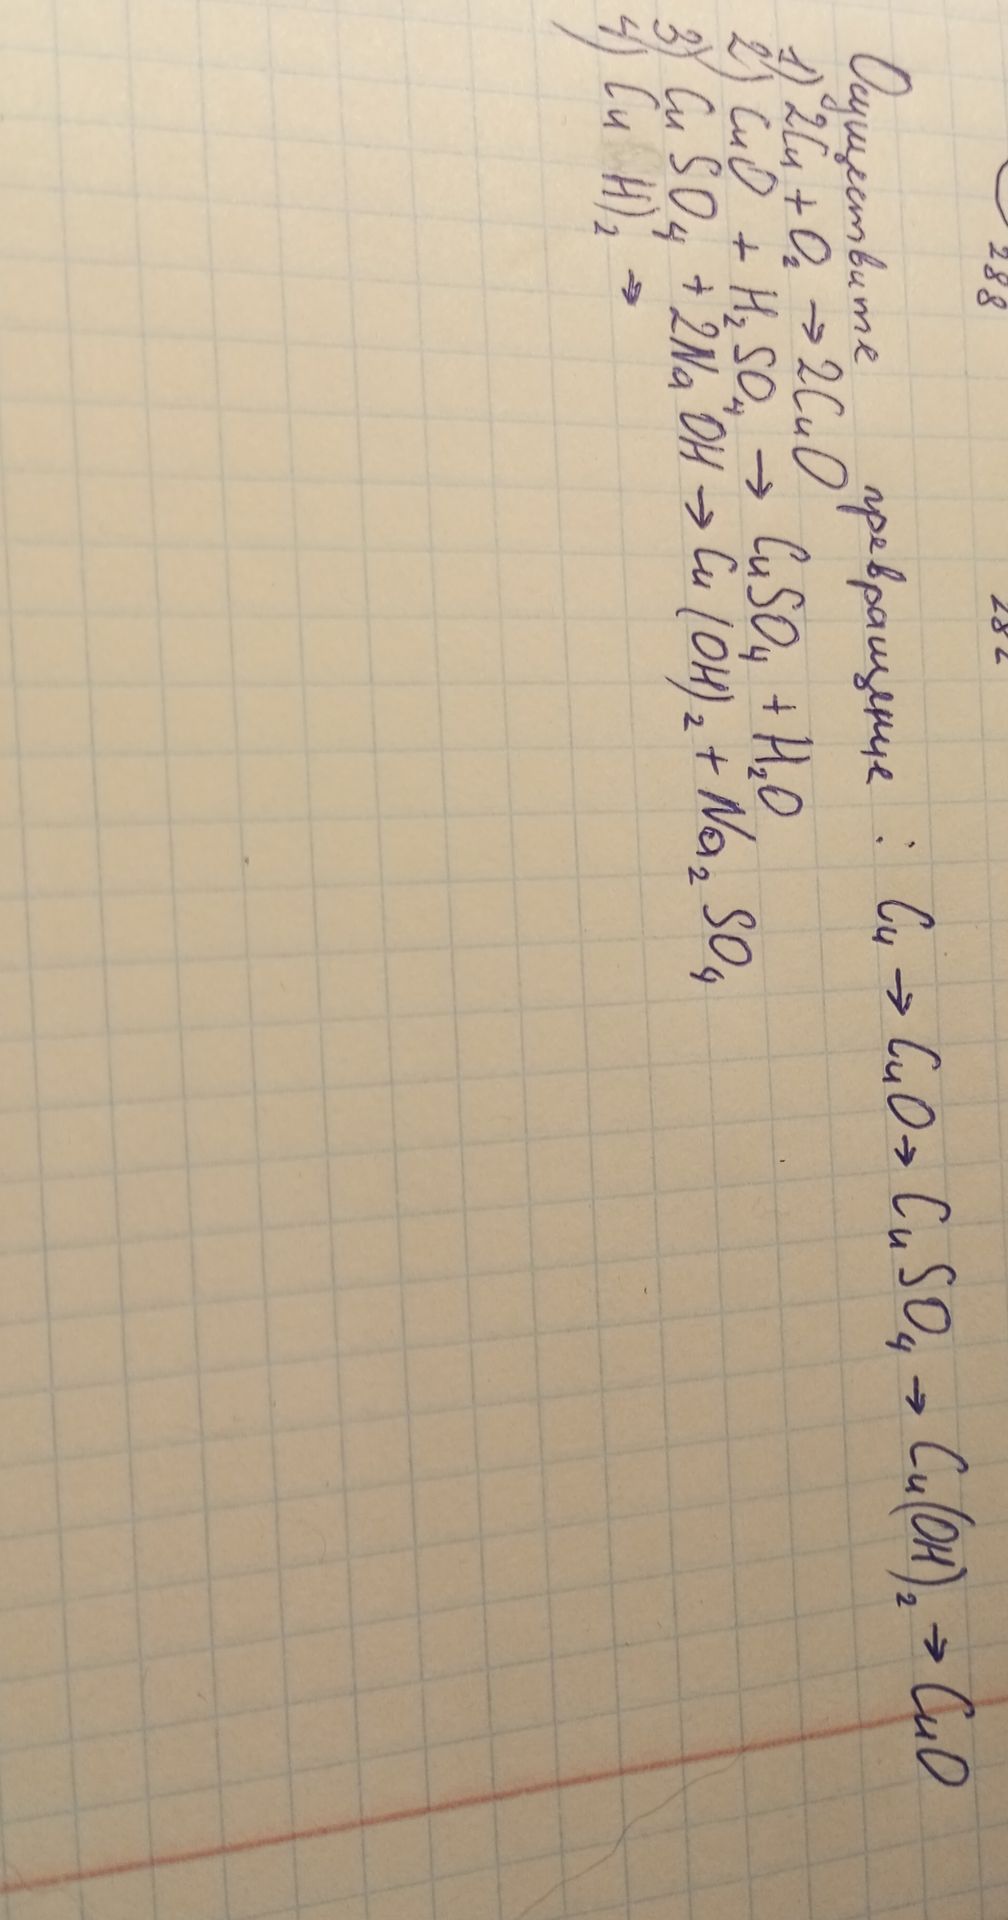 288 282
Осуществите превращение : Cu → CuO → CuSO₄ → Cu(OH)₂ → CuO
1) 2Cu + O₂ → 2CuO
2) CuO + H₂SO₄ → CuSO₄ + H₂O
3) CuSO₄ + 2NaOH → Cu(OH)₂ + Na₂SO₄
4) Cu H)₂ →